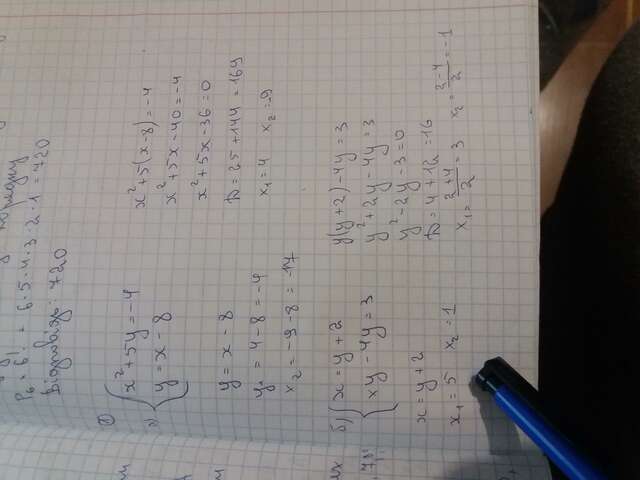 P₆ = 6! = 6·5·4·3·2·1 = 720
Відповідь: 720
а) { x²+5y=-4
y = x - 8
x²+5(x-8)=-4
x²+5x-40=-4
x²+5x-36=0
D = 25+144=169
x₁=4 x₂=-9
y = x - 8
y₁ = 4-8=-4
x₂ = -9-8 = -17
б) { x = y+2
xy-4y=3
y(y+2)-4y=3
y²+2y-4y=3
y²-2y-3=0
D = 4+12=16
x₁ = (2+4)/2 = 3 x₂ = (2-4)/2 = -1
x = y+2
x₁ = 5 x₂ = 1